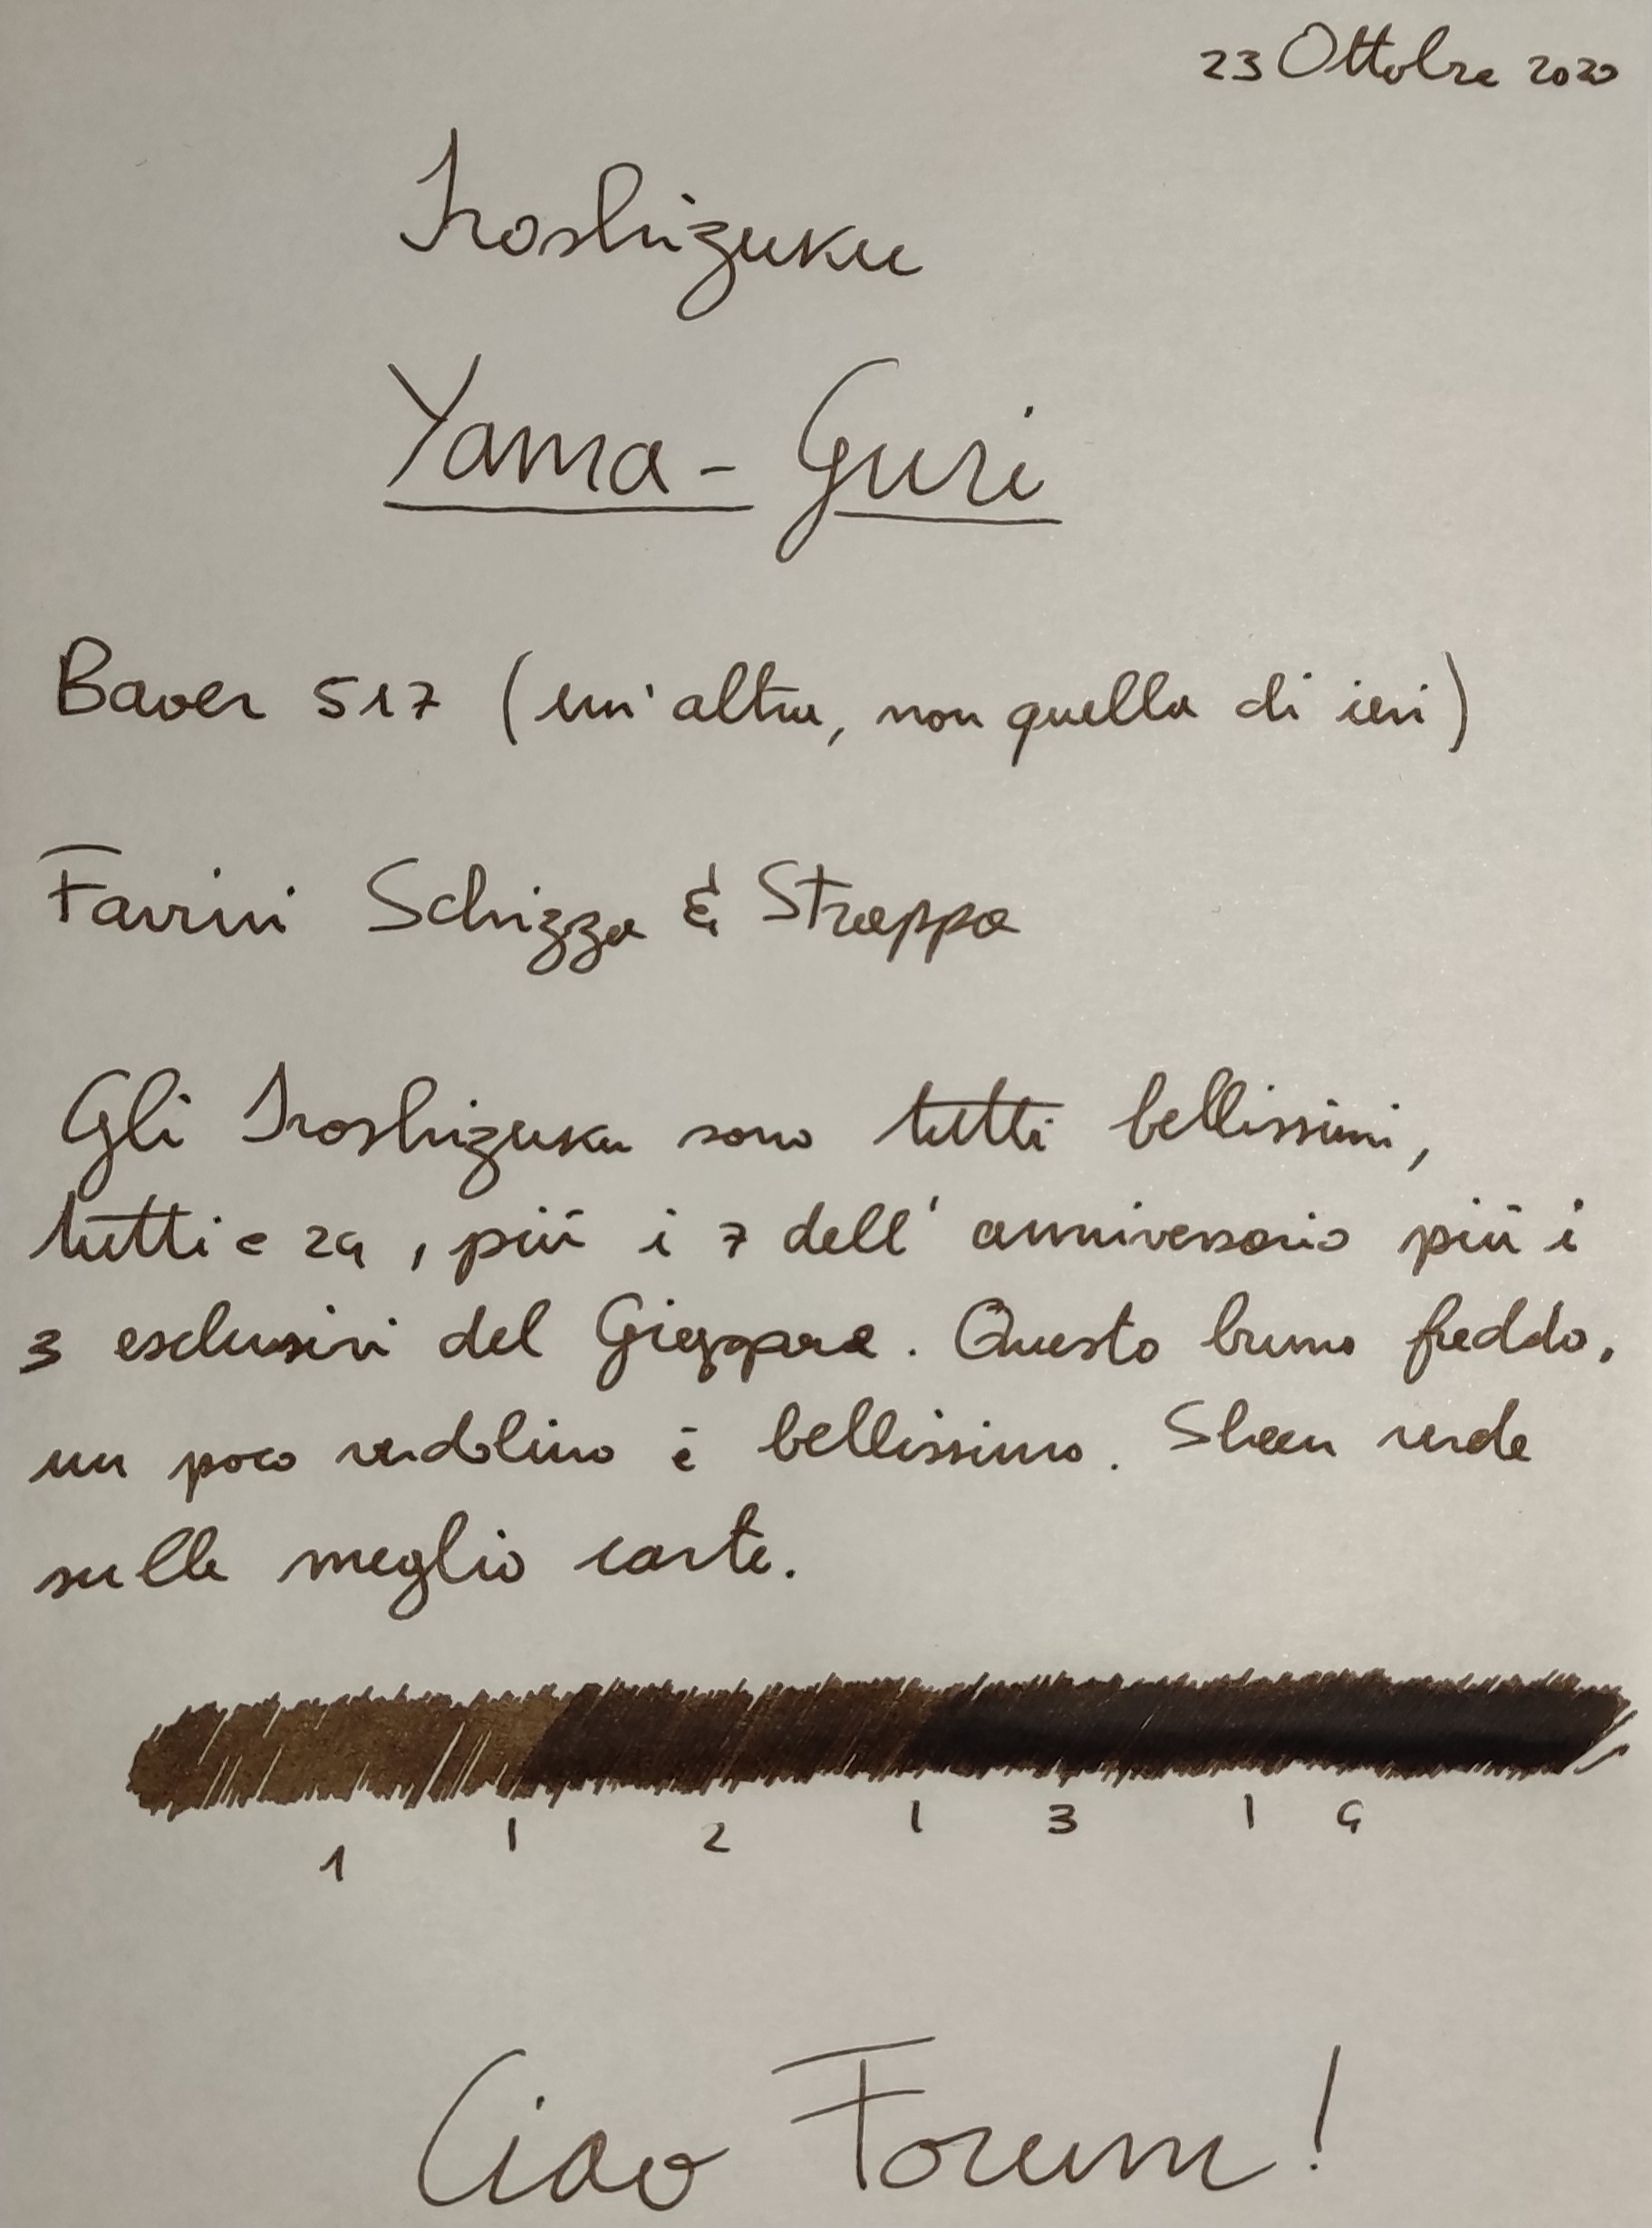 23 Ottobre 2020
Iroshizuku
Yama-Guri
Baoer 517 (un'altra, non quella di ieri)
Favini Schizza & Strappa
Gli Iroshizuku sono tutti bellissimi,
tutti e 24, più i 7 dell'anniversario più i
3 esclusivi del Giappone. Questo bruno freddo,
un poco verdolino è bellissimo. Sheen verde
sulle meglio carte.
1 | 2 | 3 | 4
Ciao Forum!